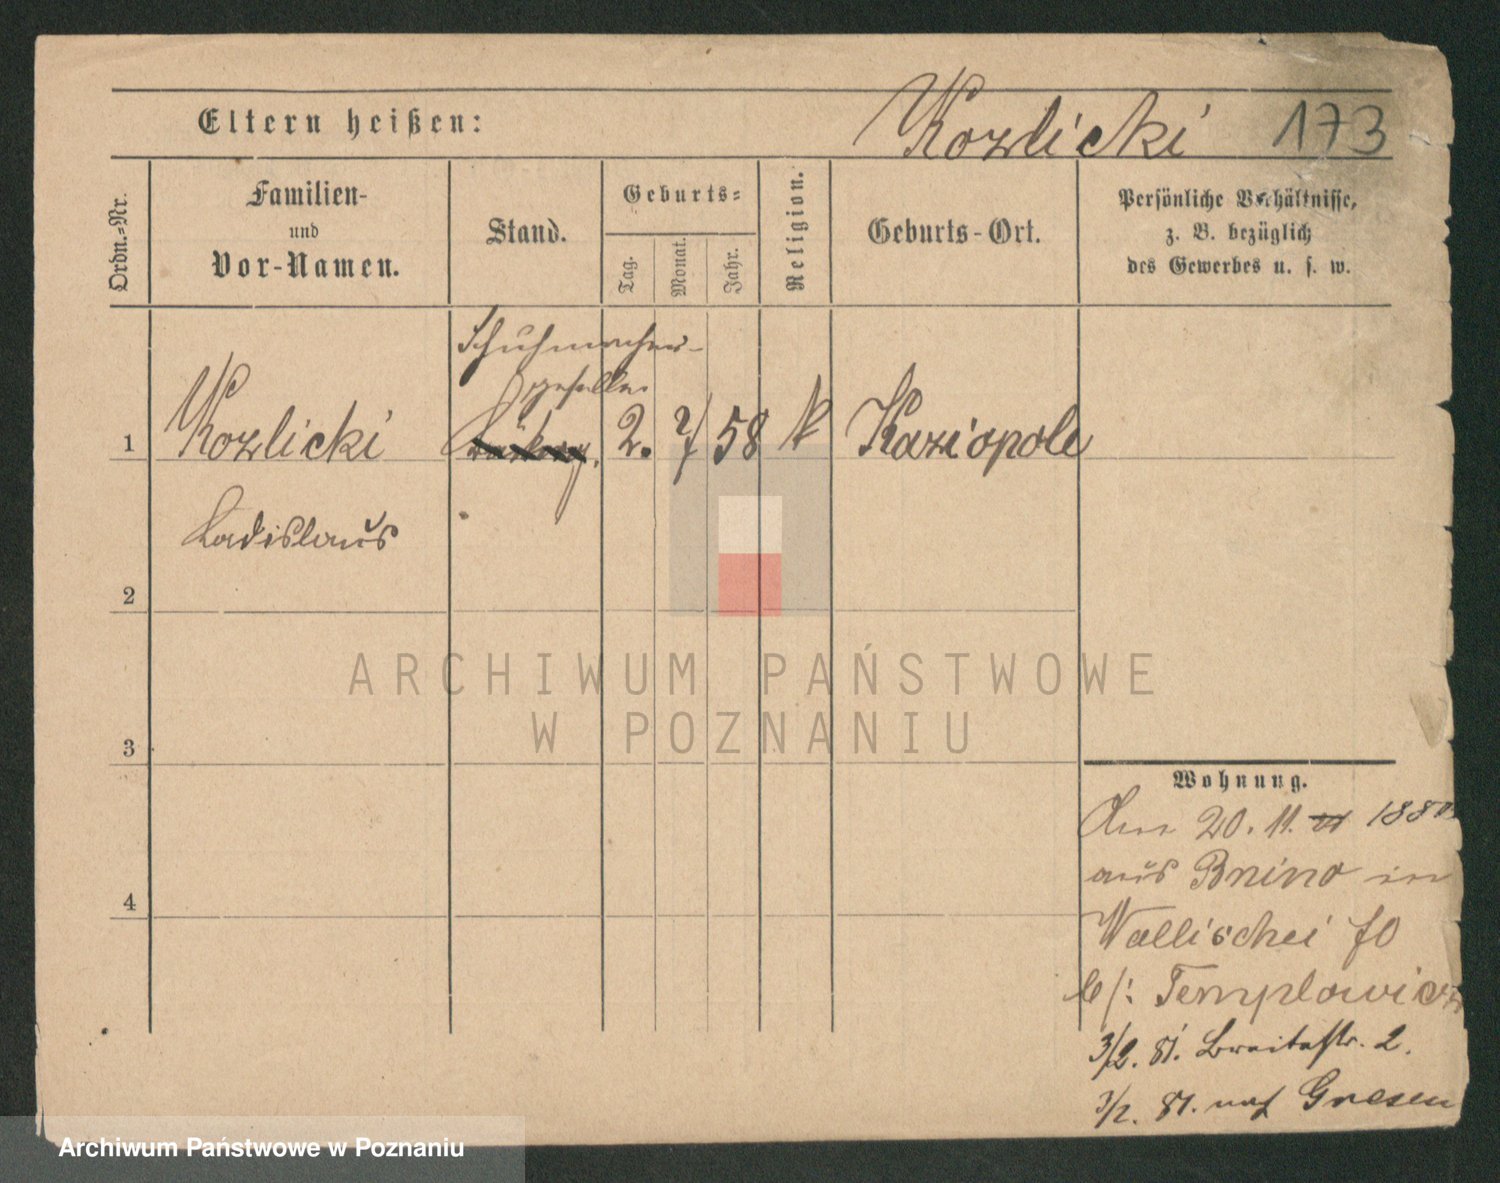 Eltern heißen:
Kozlicki 173
Ordn.=Nr.
Familien-
und
Vor-Namen.
Stand.
Geburts=
Tag.
Monat.
Jahr.
Religion.
Geburts-Ort.
Persönliche Verhältnisse,
z. B. bezüglich
des Gewerbes u. s. w.
Schuhmacher-
geselle
1 Kozlicki 2. 7 58 k Kaziopole
Ladislaus
2
3
4
ARCHIWUM PAŃSTWOWE
W POZNANIU
Wohnung.
Am 20. 11. 1880
aus Bnino in
Wallischei 70
b/: Templowicz
3/2. 81. Breitestr. 2.
3/2. 81. nach Gnesen
Archiwum Państwowe w Poznaniu